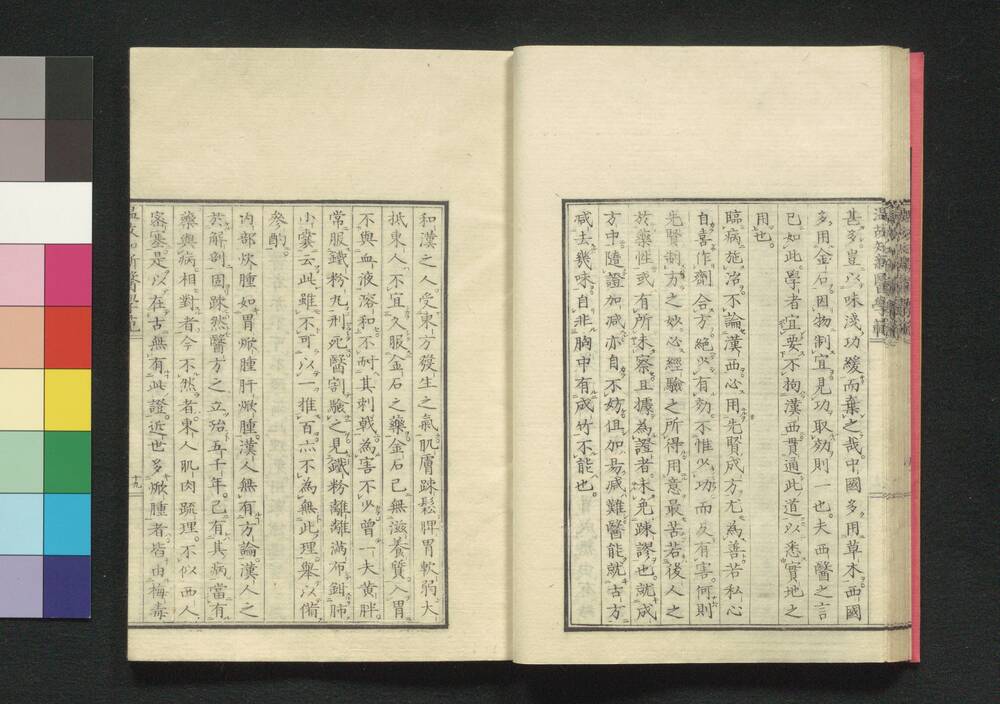 甚多豈以味淺功緩而棄之哉中國多用草木西國
多用金石因物制宜見功取効則一也夫西醫之言
已如此學者宜要不拘漢西貫通此道以悉實地之
用也。
臨病施治不論漢西必用先賢成方尤為善若私心
自喜作劑合方絕少有効不惟少功而反有害何則
先賢制方之妙必經驗之所得用意最苦若後人之
於藥性或有所未察且據為證者未免疎謬也就成
方中隨證加減亦自不妨但加易減難醫能就古方
減去幾味自非胸中有成竹不能也。
和漢之人受東方發生之氣肌膚疎鬆脾胃軟弱大
抵東人不宜久服金石之藥金石已無滋養質入胃
不與血液溶和不耐其刺戟為害不少曾一夫黃胖
常服鐵粉丸刑死醫割驗之見鐵粉離離滿布鉗肺
小囊云此雖不可以一推百亦不為無此理舉以備
參酌。
內部焮腫如胃焮腫肝焮腫漢人無有方論漢人之
於解剖固踈然醫方之立殆五千年已有其病當有
藥與病相對者今不然者東人肌肉疏理不似西人
密塞是以在古無有此證近世多焮腫者皆由梅毒
溫故知新醫學範
十九